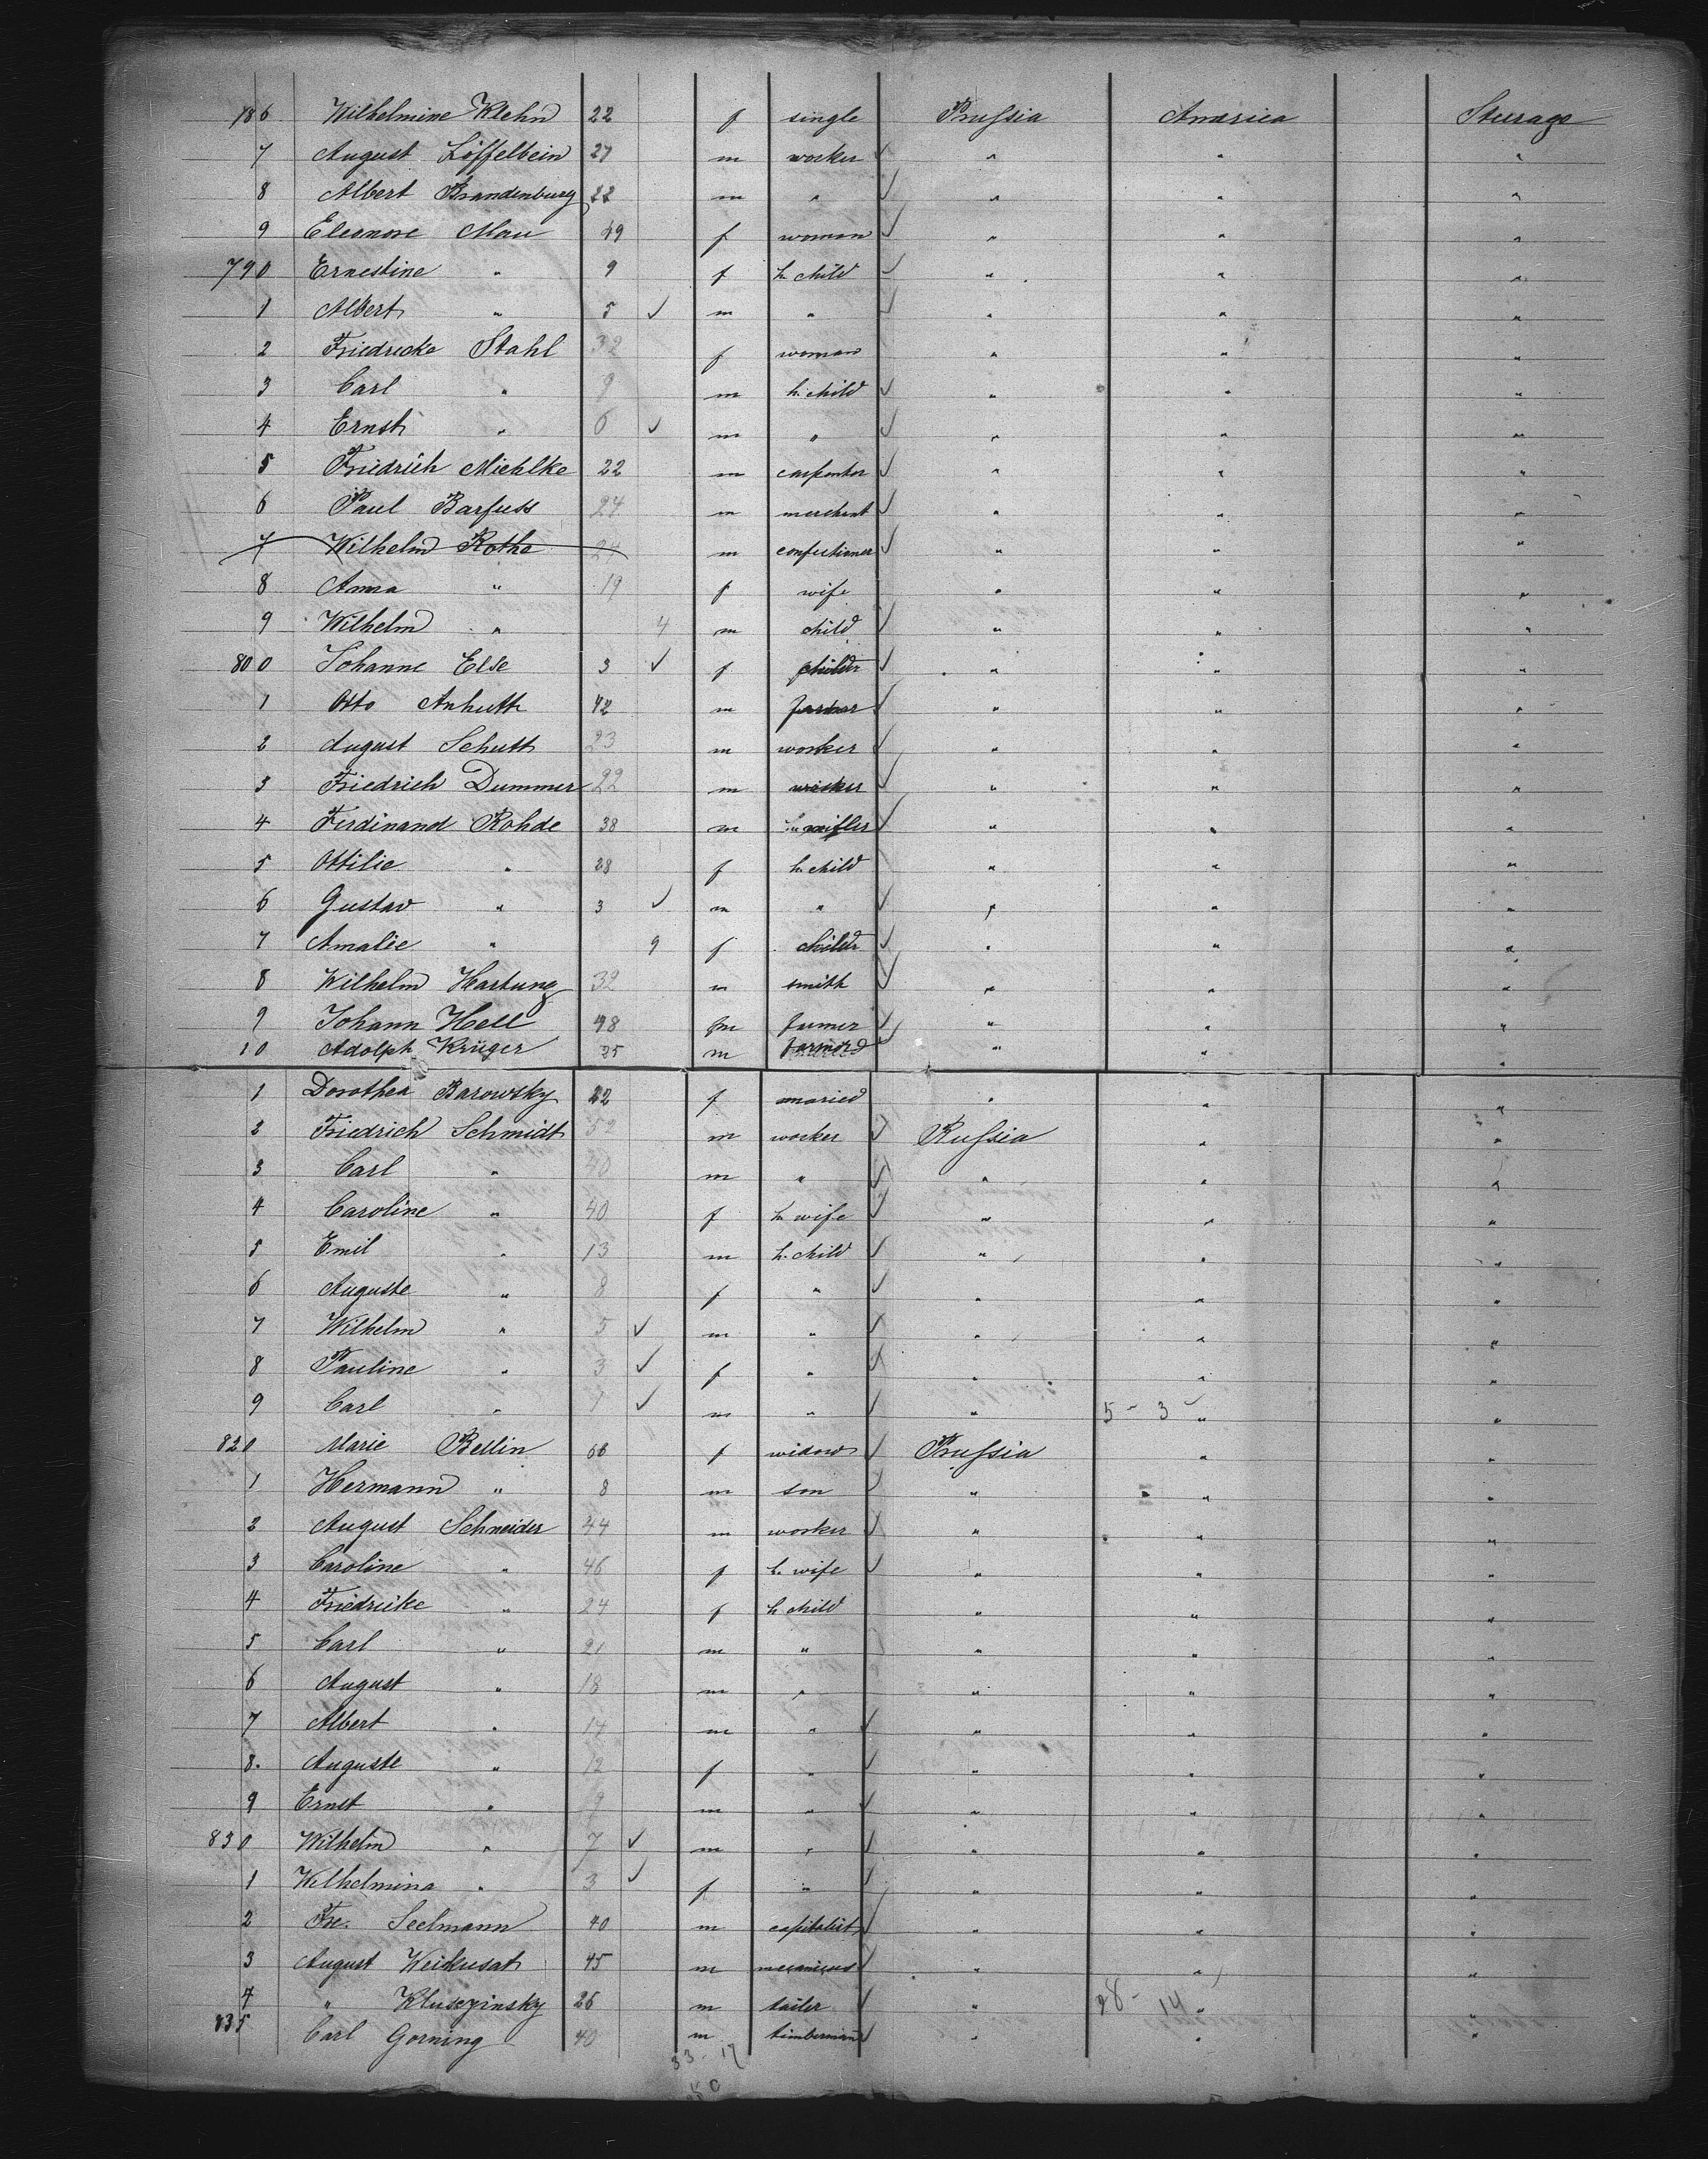 786 Wilhelmine Klehn 22 f single Prussia America Steerage
7 August Löffelbein 27 m worker ✓ " " "
8 Albert Brandenburg 22 m " ✓ " " "
9 Eleonore Mau 49 f woman ✓ " " "
790 Ernestine " 9 f h child ✓ " " "
1 Albert " 5 ✓ m " ✓ " " "
2 Friedricke Stahl 32 f woman " " "
3 Carl " 9 m h. child ✓ " " "
4 Ernst " 6 ✓ m " ✓ " " "
5 Friedrich Miehlke 22 m carpenter ✓ " " "
6 Paul Barfuss 24 m merchent ✓ " " "
7 Wilhelm Rothe 24 m confectioner ✓ " " "
8 Anna " 19 f wife " " "
9 Wilhelm " 4 m child ✓ " " "
800 Johanne Else 3 ✓ f child ✓ " " "
1 Otto Anhuth 42 m farmer ✓ " " "
2 August Schutt 23 m worker ✓ " " "
3 Friedrich Dummer 22 m worker ✓ " " "
4 Ferdinand Rohde 38 m ✓ " " "
5 Ottilie " 28 f h. child " " "
6 Gustav " 3 ✓ m " ✓ " " "
7 Amalie " 9 f child ✓ " " "
8 Wilhelm Hartung 32 m smith ✓ " " "
9 Johann Hell 48 m farmer ✓ " " "
10 Adolph Krüger 25 m ✓ " " "
1 Dorothea Barowsky 22 f maried " " "
2 Friedrich Schmidt 52 m worker ✓ Russia " "
3 Carl " 40 m " ✓ " " "
4 Caroline " 40 f h wife ✓ " " "
5 Emil " 13 m h. child ✓ " " "
6 Auguste " 8 f " ✓ " " "
7 Wilhelm " 5 ✓ m " ✓ " " "
8 Pauline " 3 ✓ f " ✓ " " "
9 Carl " 7 ✓ m " ✓ " 5 - 3 " "
820 Marie Bellin 66 f widow ✓ Prussia " "
1 Hermann " 8 m son ✓ " " "
2 August Schneider 44 m worker ✓ " " "
3 Caroline " 46 f h. wife ✓ " " "
4 Friedricke " 24 f h child " " "
5 Carl " 21 m " " " "
6 August " 18 m " " " "
7 Albert " 14 m " ✓ " " "
8. Auguste " 12 f " ✓ " " "
9 Ernst " 9 m " ✓ " " "
830 Wilhelm " 7 ✓ m " ✓ " " "
1 Wilhelmina " 3 ✓ f " ✓ " " "
2 Fre. Seelmann 40 m capitalist ✓ " " "
3 August Weikusat 45 m mecanicus ✓ " " "
4 " Klusezinsky 26 m tailer ✓ " 28 - 14 " "
835 Carl Gorning 40 m timberman ✓ " " "
33 - 17
50